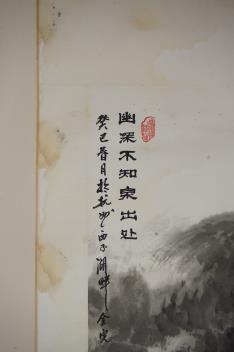 幽深不知泉出处
癸巳春月於杭州西子湖畔